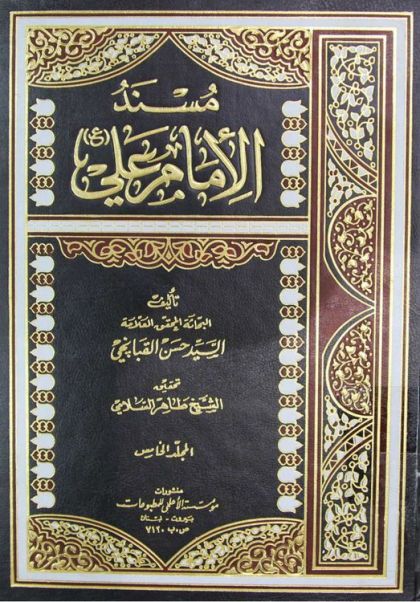 مُسْنَدُ
الإمَامِ عَلي (ع)
تأليف
البحاثة المحقق العلامة
السيّد حسن القبانجي
تحقيق
الشيخ طاهر السلامي
المجلد الخامس
منشورات
مؤسسة الأعلمي للمطبوعات
بيروت - لبنان
ص.ب ٧١٢٠